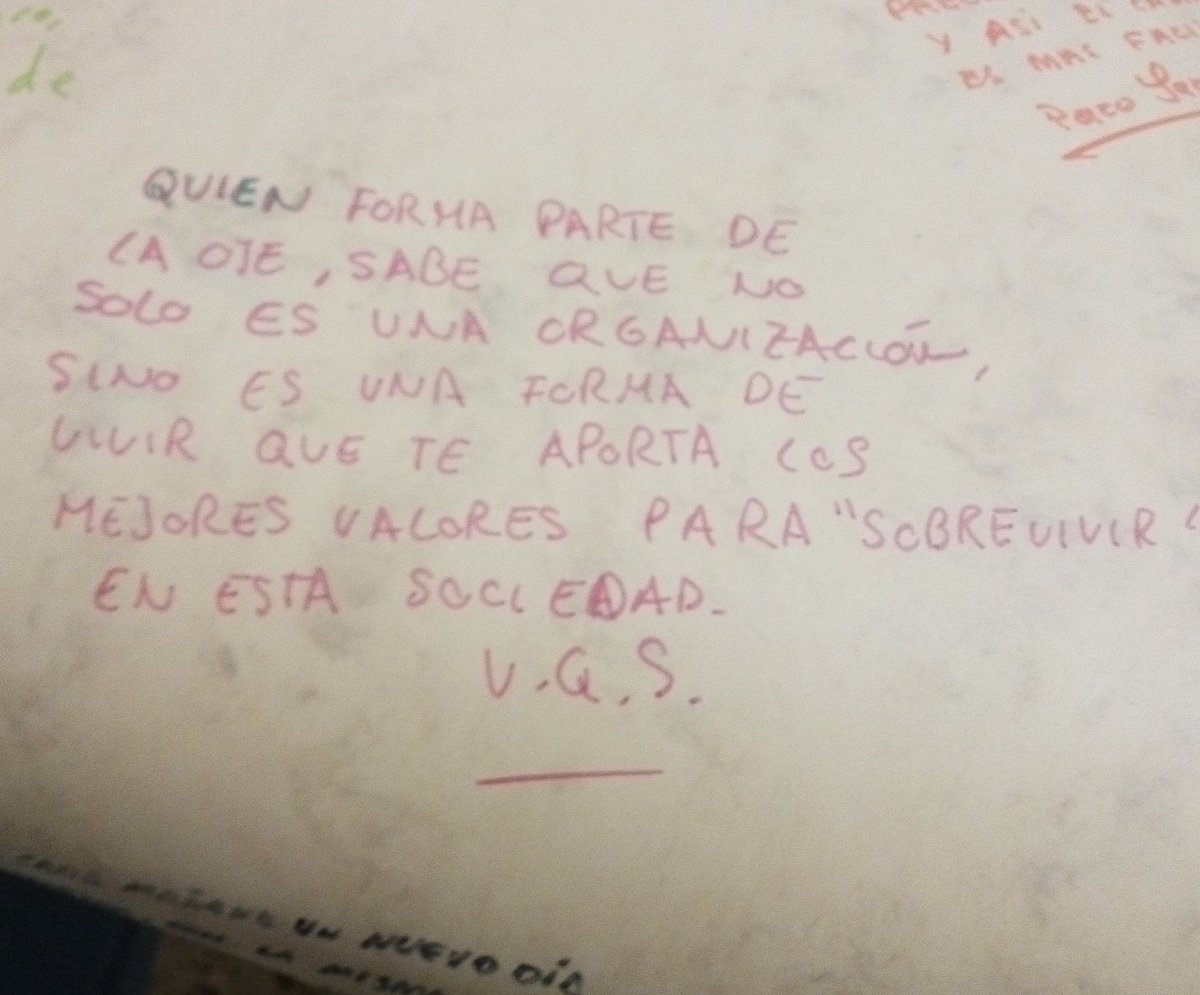 de
Y ASÍ EL
ES MAS FACIL
Paco
QUIEN FORMA PARTE DE
LA OJE, SABE QUE NO
SOLO ES UNA ORGANIZACIÓN,
SINO ES UNA FORMA DE
VIVIR QUE TE APORTA LOS
MEJORES VALORES PARA "SOBREVIVIR"
EN ESTA SOCIEDAD.
V.G.S.
CADA MAÑANA UN NUEVO DÍA
LA MISMA